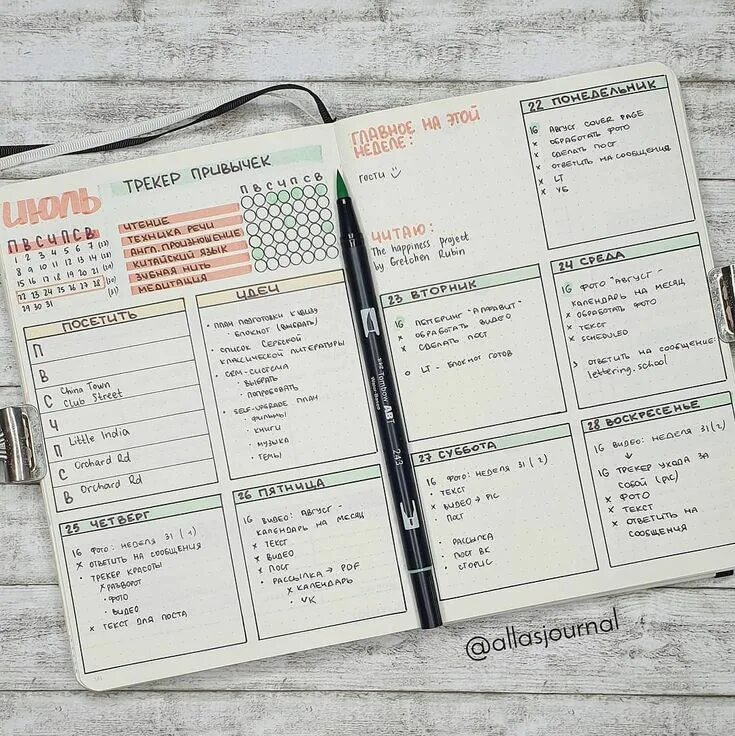 ИЮЛЬ
П В С Ч П С В
1 2 3 4 5 6 7
8 9 10 11 12 13 14
15 16 17 18 19 20 21
22 23 24 25 26 27 28
29 30 31
ТРЕКЕР ПРИВЫЧЕК
П В С Ч П С В
ЧТЕНИЕ
ТЕХНИКА РЕЧИ
АНГЛ. ПРОИЗНОШЕНИЕ
КИТАЙСКИЙ ЯЗЫК
ЗУБНАЯ НИТЬ
МЕДИТАЦИЯ
ПОСЕТИТЬ
П
В
С China Town
Club Street
Ч
П Little India
С Orchard Rd
В Orchard Rd
ИДЕИ
• ПЛАН ПОДГОТОВКИ К
• БЛОКНОТ (ВЫБРАТЬ)
• СПИСОК СЕРЕСНОЙ
КЛАССИЧЕСКОЙ ЛИТЕРАТУРЫ
• CRM-СИСТЕМА
• ВЫБРАТЬ
• ПОПРОБОВАТЬ
• SELF-UPGRADE ПЛАН
• ФИЛЬМЫ
• КНИГИ
• МУЗЫКА
• ТЕМЫ
25 ЧЕТВЕРГ
IG ФОТО: НЕДЕЛЯ 31 (1)
x ОТВЕТИТЬ НА СООБЩЕНИЯ
• ТРЕКЕР КРАСОТЫ
x РАЗВОРОТ
• ФОТО
• ВИДЕО
x ТЕКСТ ДЛЯ ПОСТА
26 ПЯТНИЦА
IG ВИДЕО: АВГУСТ -
КАЛЕНДАРЬ НА МЕСЯЦ
x ТЕКСТ
x ВИДЕО
x ПОСТ
• РАССЫЛКА → PDF
x КАЛЕНДАРЬ
• VK
ГЛАВНОЕ НА ЭТОЙ
НЕДЕЛЕ:
ГОСТИ
ЧИТАЮ:
The happiness project
by Gretchen Rubin
22 ПОНЕДЕЛЬНИК
IG АВГУСТ COVER PAGE
x ОБРАБОТАТЬ ФОТО
x СДЕЛАТЬ ПОСТ
x ОТВЕТИТЬ НА СООБЩЕНИЯ
x LT
x УБ
23 ВТОРНИК
IG ЛЕТТЕРИНГ "АЛФАВИТ"
x ОБРАБОТАТЬ ВИДЕО
x СДЕЛАТЬ ПОСТ
o LT - БЛОКНОТ ГОТОВ
24 СРЕДА
IG ФОТО "АВГУСТ -
КАЛЕНДАРЬ НА МЕСЯЦ
x ОБРАБОТАТЬ ФОТО
x ТЕКСТ
x SCHEDULED
> ОТВЕТИТЬ НА СООБЩЕНИЕ
lettering.school
27 СУББОТА
IG ФОТО: НЕДЕЛЯ 31 (2)
• ТЕКСТ
x ВИДЕО → PIC
ПОСТ
• РАССЫЛКА
• ПОСТ ВК
• СТОРИС
28 ВОСКРЕСЕНЬЕ
IG ВИДЕО: НЕДЕЛЯ 31(2)
↓
IG ТРЕКЕР УХОДА ЗА
СОБОЙ (PIC)
x ФОТО
x ТЕКСТ
x ОТВЕТИТЬ НА
СООБЩЕНИЯ
Tombow ABT
243
@allasjournal